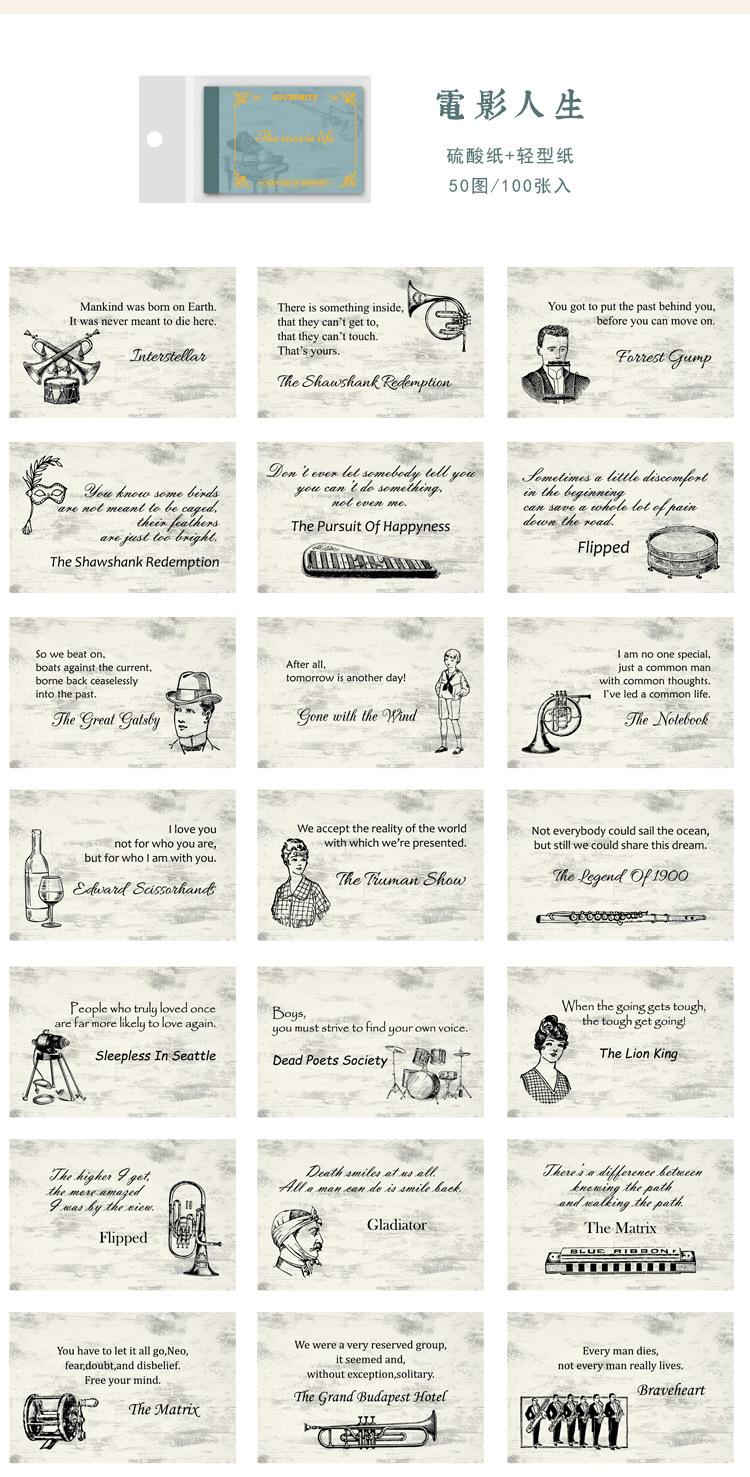 SOUNDBITE
The movie life
電影人生
硫酸纸+轻型纸
50图/100张入
Mankind was born on Earth.
It was never meant to die here.
Interstellar
There is something inside,
that they can't get to,
that they can't touch.
That's yours.
The Shawshank Redemption
You got to put the past behind you,
before you can move on.
Forrest Gump
You know some birds
are not meant to be caged,
their feathers
are just too bright.
The Shawshank Redemption
Don't ever let somebody tell you
you can't do something,
not even me.
The Pursuit Of Happyness
Sometimes a little discomfort
in the beginning
can save a whole lot of pain
down the road.
Flipped
So we beat on,
boats against the current,
borne back ceaselessly
into the past.
The Great Gatsby
After all,
tomorrow is another day!
Gone with the Wind
I am no one special,
just a common man
with common thoughts.
I've led a common life.
The Notebook
I love you
not for who you are,
but for who I am with you.
Edward Scissorhands
We accept the reality of the world
with which we're presented.
The Truman Show
Not everybody could sail the ocean,
but still we could share this dream.
The Legend Of 1900
People who truly loved once
are far more likely to love again.
Sleepless In Seattle
Boys,
you must strive to find your own voice.
Dead Poets Society
When the going gets tough,
the tough get going!
The Lion King
The higher I got,
the more amazed
I was by the view.
Flipped
Death smiles at us all.
All a man can do is smile back.
Gladiator
There's a difference between
knowing the path
and walking the path.
The Matrix
BLUE RIBBON
You have to let it all go,Neo,
fear,doubt,and disbelief.
Free your mind.
The Matrix
We were a very reserved group,
it seemed and,
without exception,solitary.
The Grand Budapest Hotel
Every man dies,
not every man really lives.
Braveheart